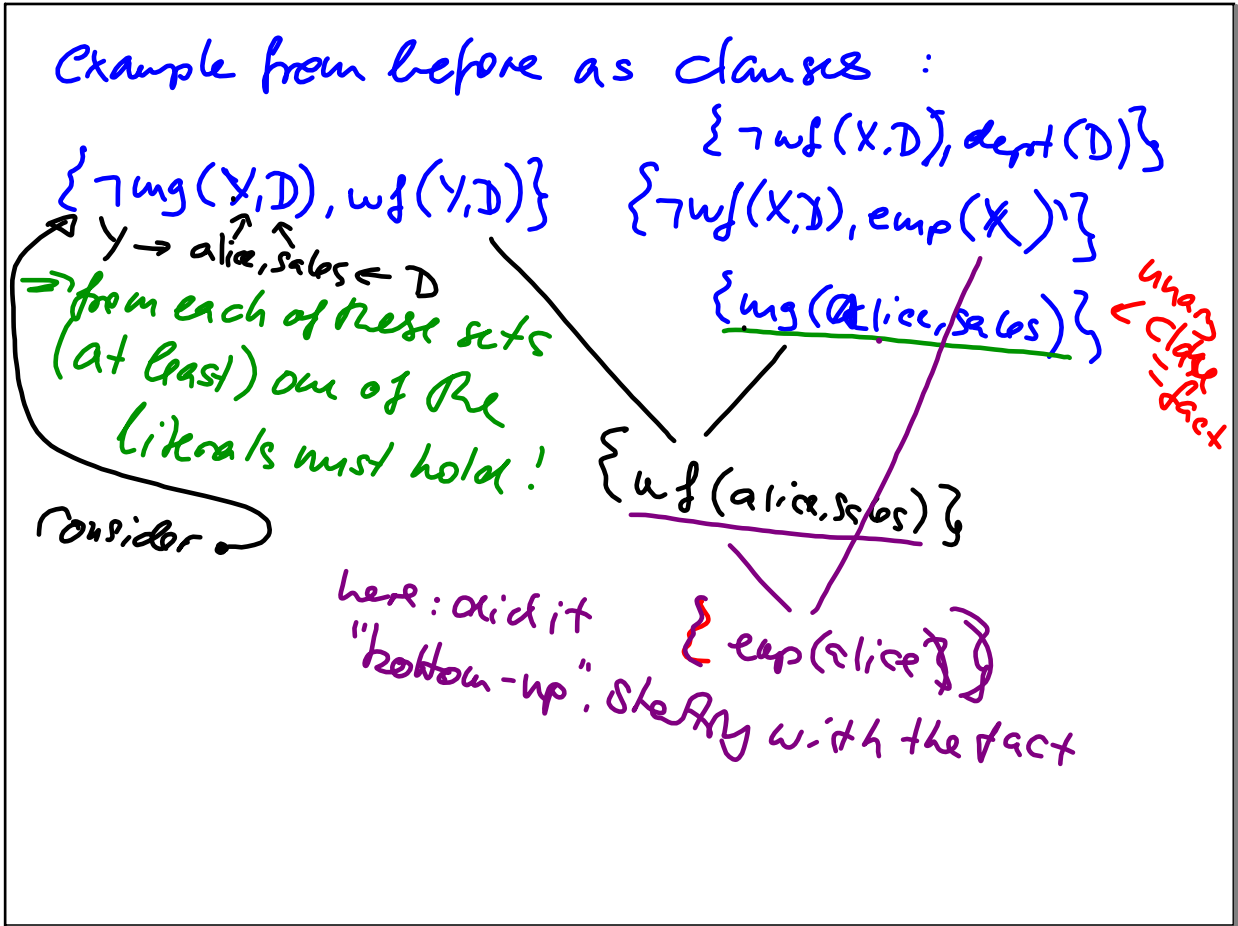 Example from before as clauses :
{¬wf(X,D), dept(D)}
{¬mg(Y,D), wf(Y,D)}
{¬wf(X,D), emp(X)}
Y → alice, sales ← D
{mg(alice,sales)}
← unary clause = fact
⇒ from each of these sets
(at least) one of the
literals must hold!
{wf(alice,sales)}
consider
here: did it
{emp(alice)}
"bottom-up": starting with the fact